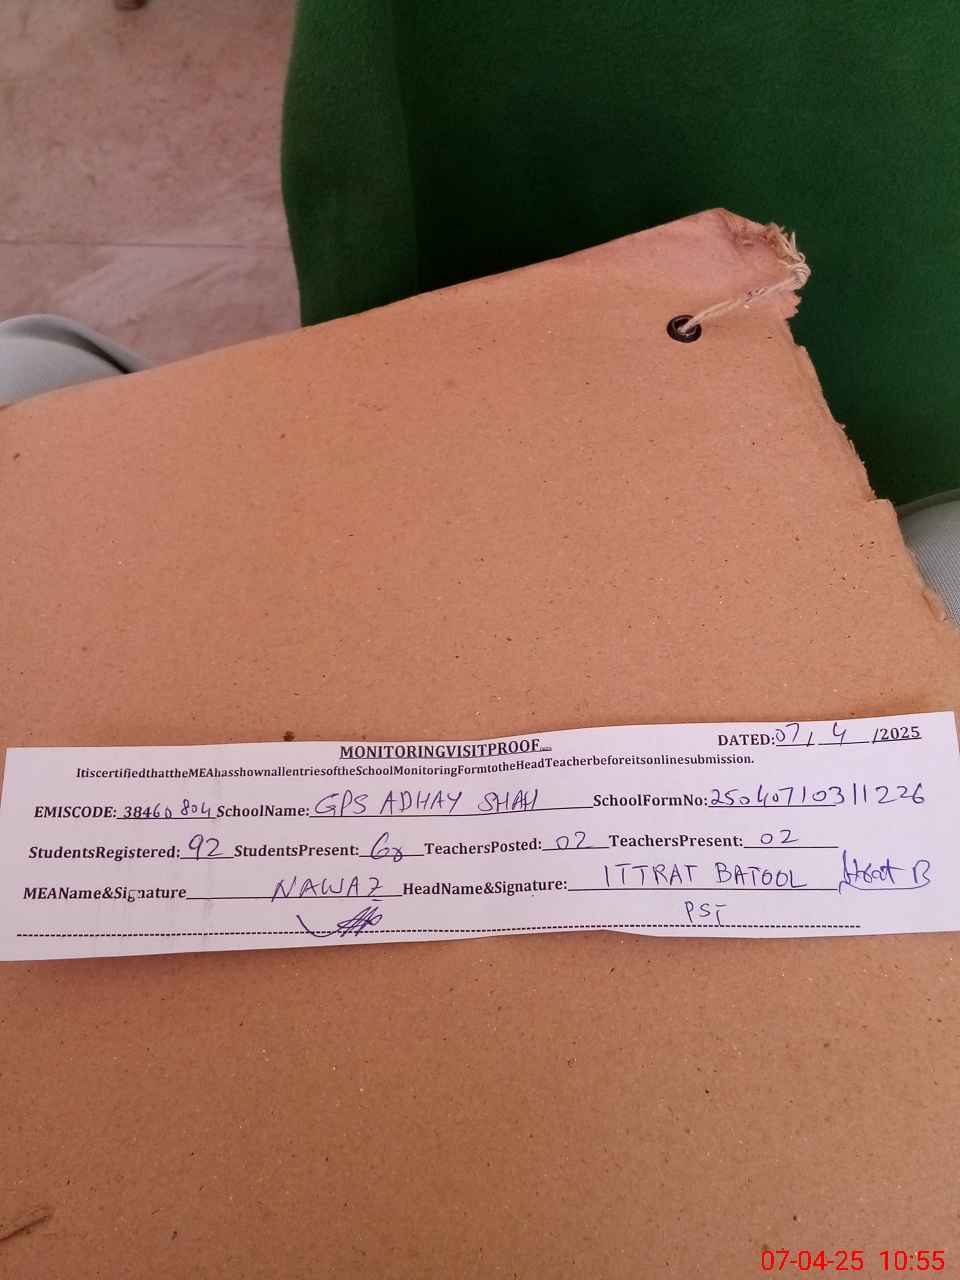 MONITORINGVISITPROOF
DATED: 07/ 4 /2025
ItiscertifiedthattheMEAhasshownallentriesoftheSchoolMonitoringFormtotheHeadTeacherbeforeitsonlinesubmission.
EMISCODE: 38460804 SchoolName: GPS ADHAY SHAH SchoolFormNo: 25040710311226
StudentsRegistered: 92 StudentsPresent: TeachersPosted: 02 TeachersPresent: 02
MEAName&Signature NAWAZ HeadName&Signature: ITTRAT BATOOL
PST
07-04-25 10:55